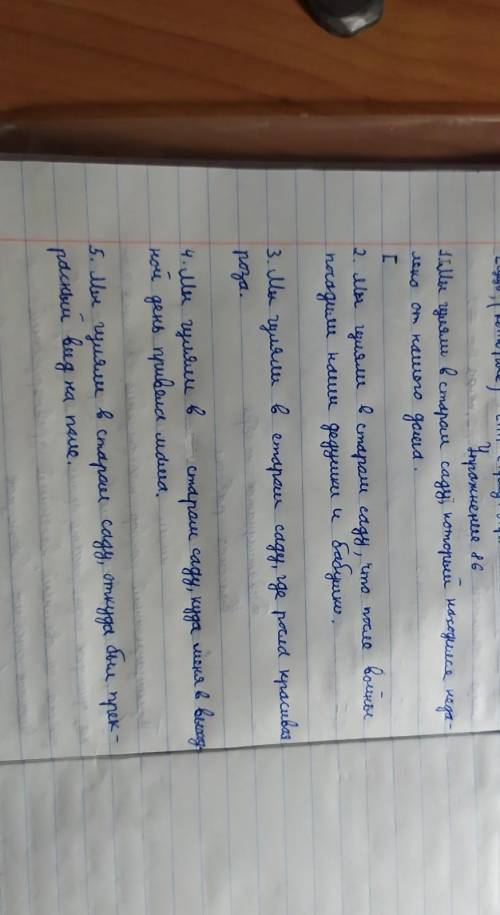 Упражнение 86
1. Мы гуляли в старом саду, который находился неда-
леко от нашего дома.
2. Мы гуляли в старом саду, что после войны
посадили наши дедушки и бабушки.
3. Мы гуляли в старом саду, где росла красивая
роза.
4. Мы гуляли в старом саду, куда меня в выход-
ной день привела мама.
5. Мы гуляли в старом саду, откуда был прек-
расный вид на поле.